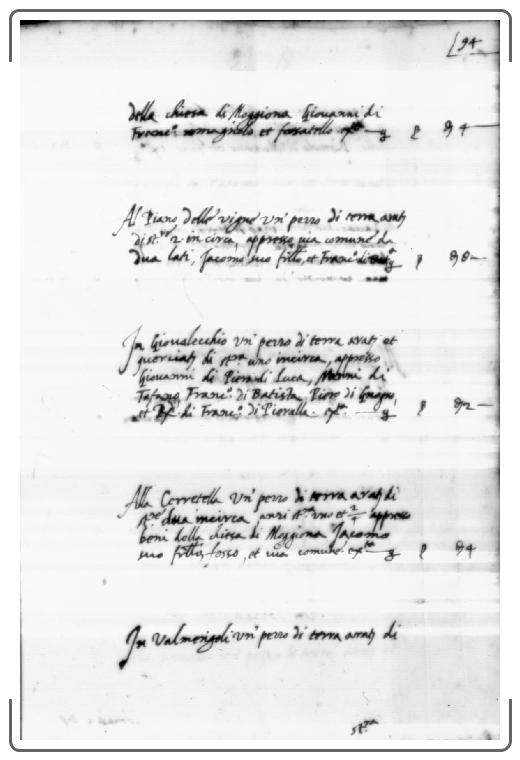 94
della chiesa di Moggiona Giovanni di
Franc.º romagnolo et fossatello
Al Piano delle vigne un' pezzo di terra arat.
di st. 2 in circa, appresso via comune da
dua lati, Jacomo suo frllo, et Franc.º di
In Giovalecchio un' pezzo di terra arat. et
querciat. di st.ra uno incirca, appresso
Giovanni di Piero di Luca, Nanni di
Franc.º di Batista, Piero di
et di Franc.º di
Alla Cerretella un' pezzo di terra arat. di
dua incirca anzi st.ra uno et 2/4 appresso
beni della chiesa di Moggiona Jacomo
suo frllo, fosso, et via comune
In Valmengoli un' pezzo di terra arat. di
st.ra